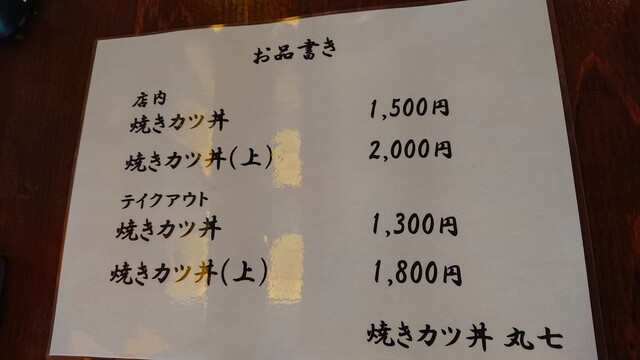 お品書き
店内
焼きカツ丼 1,500円
焼きカツ丼(上) 2,000円
テイクアウト
焼きカツ丼 1,300円
焼きカツ丼(上) 1,800円
焼きカツ丼 丸七